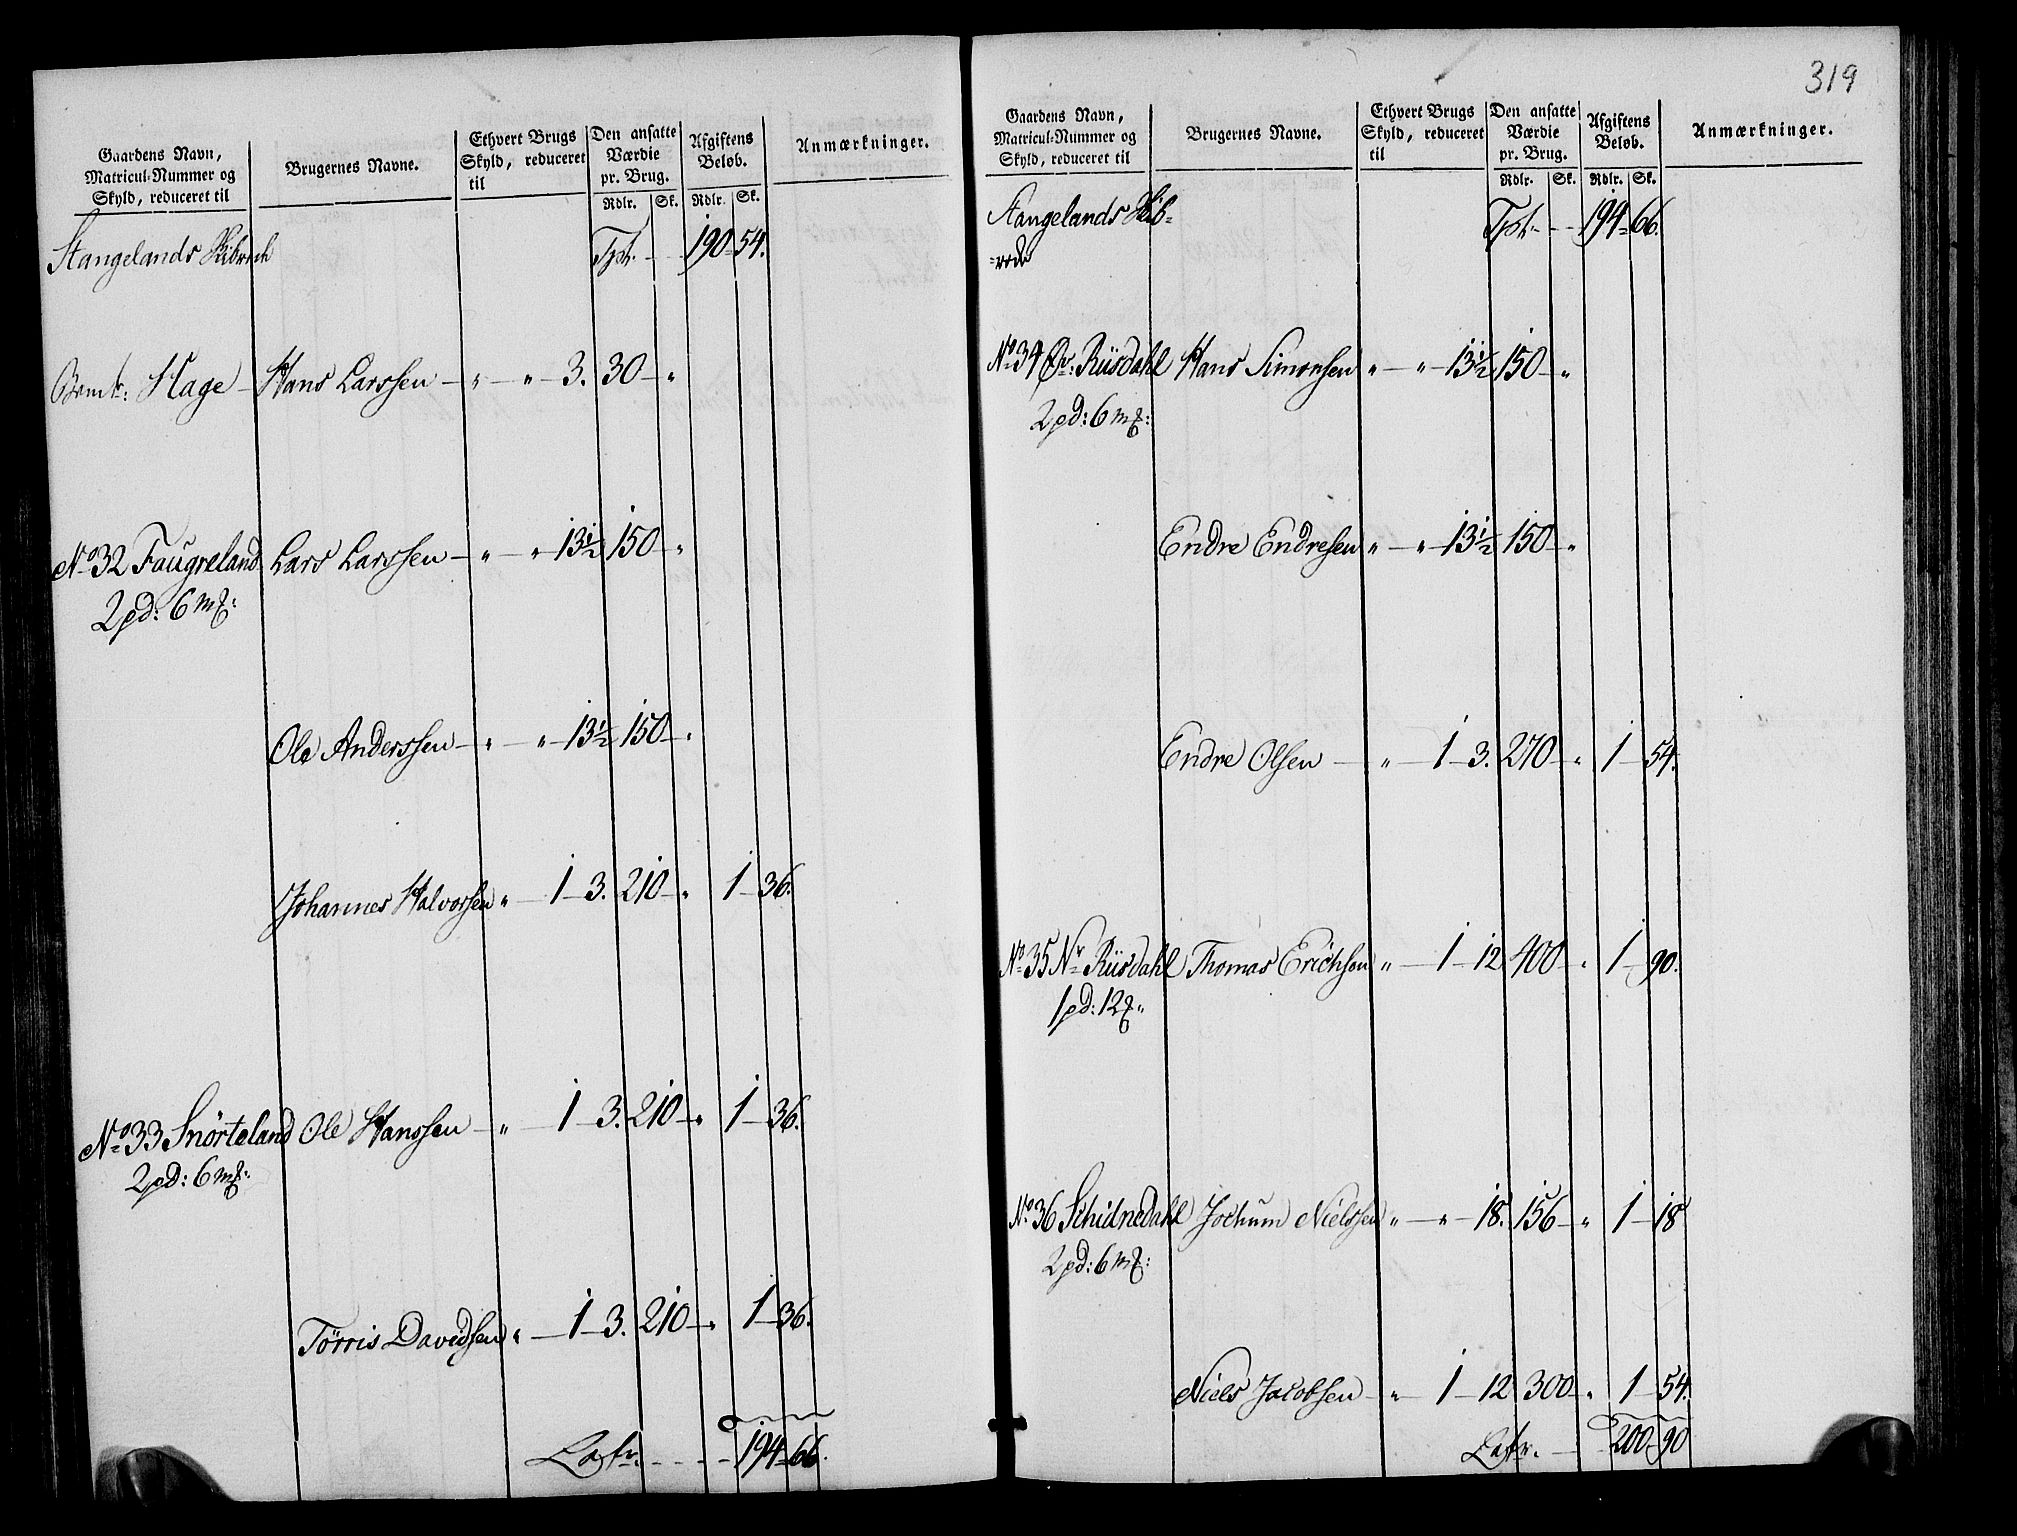 Gaardens Navn, Matricul-Nummer og Skyld, reduceret til
Brugernes Navne.
Ethvert Brugs Skyld, reduceret til
Den ansatte Værdie pr. Brug.
Afgiftens Beløb.
Anmærkninger.
Rdlr. Sk. Rdlr. Sk.
Stangelands Skibrede Tpt. - - 190 - 54.
Hage - Hans Larssen - " - " - 3. 30 - "
No 32 Faugreland Lars Larssen - " - " 13½ 150 - "
2 pd: 6 mk:
Ole Anderssen - " - " - 13½ 150 - "
Johannes Halvorsen " - 1 - 3. 210 - " 1 - 36.
No 33 Snørteland Ole Hanssen - " - 1 - 3. 210 - " 1 - 36.
2 pd: 6 mk:
Tørris Davidsen " - 1 - 3. 210 - " 1 - 36.
Latr. - - - - 194 - 66.
319
Gaardens Navn, Matricul-Nummer og Skyld, reduceret til
Brugernes Navne.
Ethvert Brugs Skyld, reduceret til
Den ansatte Værdie pr. Brug.
Afgiftens Beløb.
Anmærkninger.
Rdlr. Sk. Rdlr. Sk.
Stangelands Skib- Tpt. - - 194 - 66.
=rede
No 34 Ør: Riisdahl Hans Simonsen " - " - 13½ 150 - "
2 pd: 6 mk:
Endre Endresen " - " - 13½ 150 - "
Endre Olsen - " - 1 - 3. 270 - " 1 - 54.
No 35 Nr Riisdahl Thomas Erichson " - 1 - 12 400 - " 1 - 90.
1 pd: 12 mk
No 36 Schidnedahl Jochum Nielssen " - " - 18. 156 - " 1 - 18
2 pd: 6 mk:
Niels Jacobsen - " - 1 - 12 300 - " 1 - 54.
Latr. - - 200 - 90